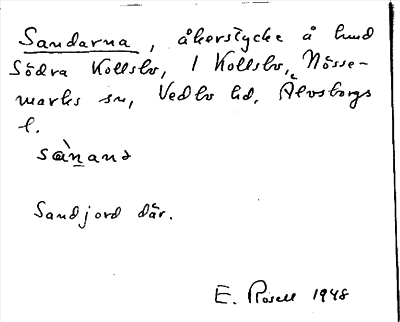 Sandarna, åkerstycke å hmd
Södra Kollsbo, 1 Kollsbo, Nösse-
marks sn, Vedbo hd, Älvsborgs
l.
sànana
Sandjord där.
E. Rosell 1948